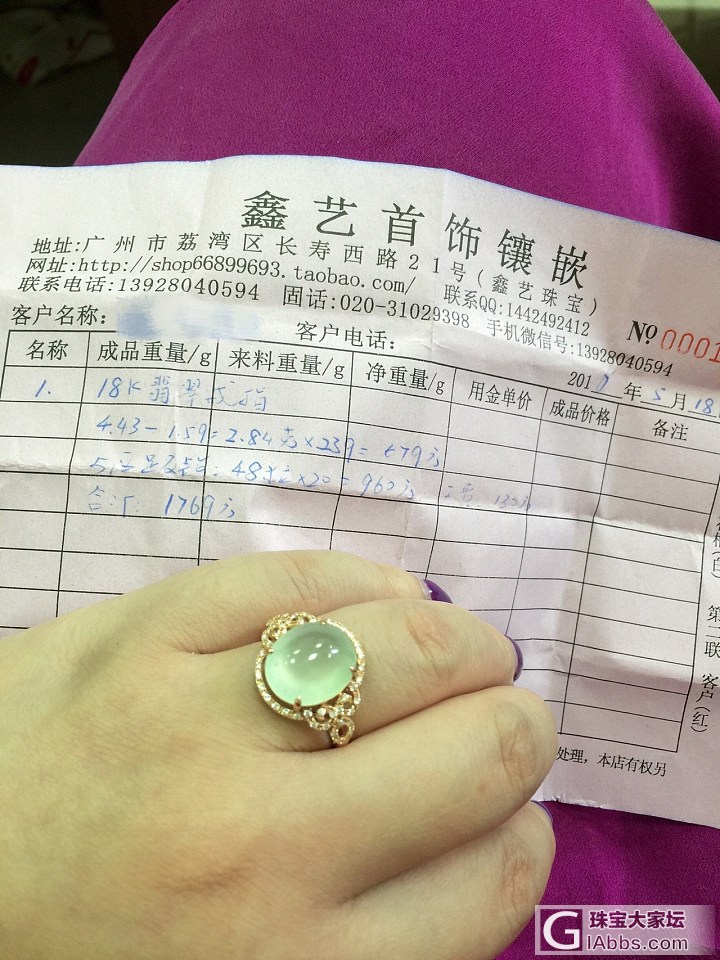 鑫艺首饰镶嵌
地址:广州市荔湾区长寿西路21号(鑫艺珠宝)
网址:http://shop66899693.taobao.com/
联系QQ:1442492412
联系电话:13928040594 固话:020-31029398 手机微信号:13928040594
№ 0001
客户名称: 客户电话:
2017年5月18
名称 成品重量/g 来料重量/g 净重量/g 用金单价 成品价格 备注
1. 18K翡翠戒指
4.43-1.59=2.84克×239=679元
48粒×20=960元 130元
合计: 1769元
(白) 第二联 客户(红)
处理,本店有权另
G 珠宝大家坛
GIAbbs.com